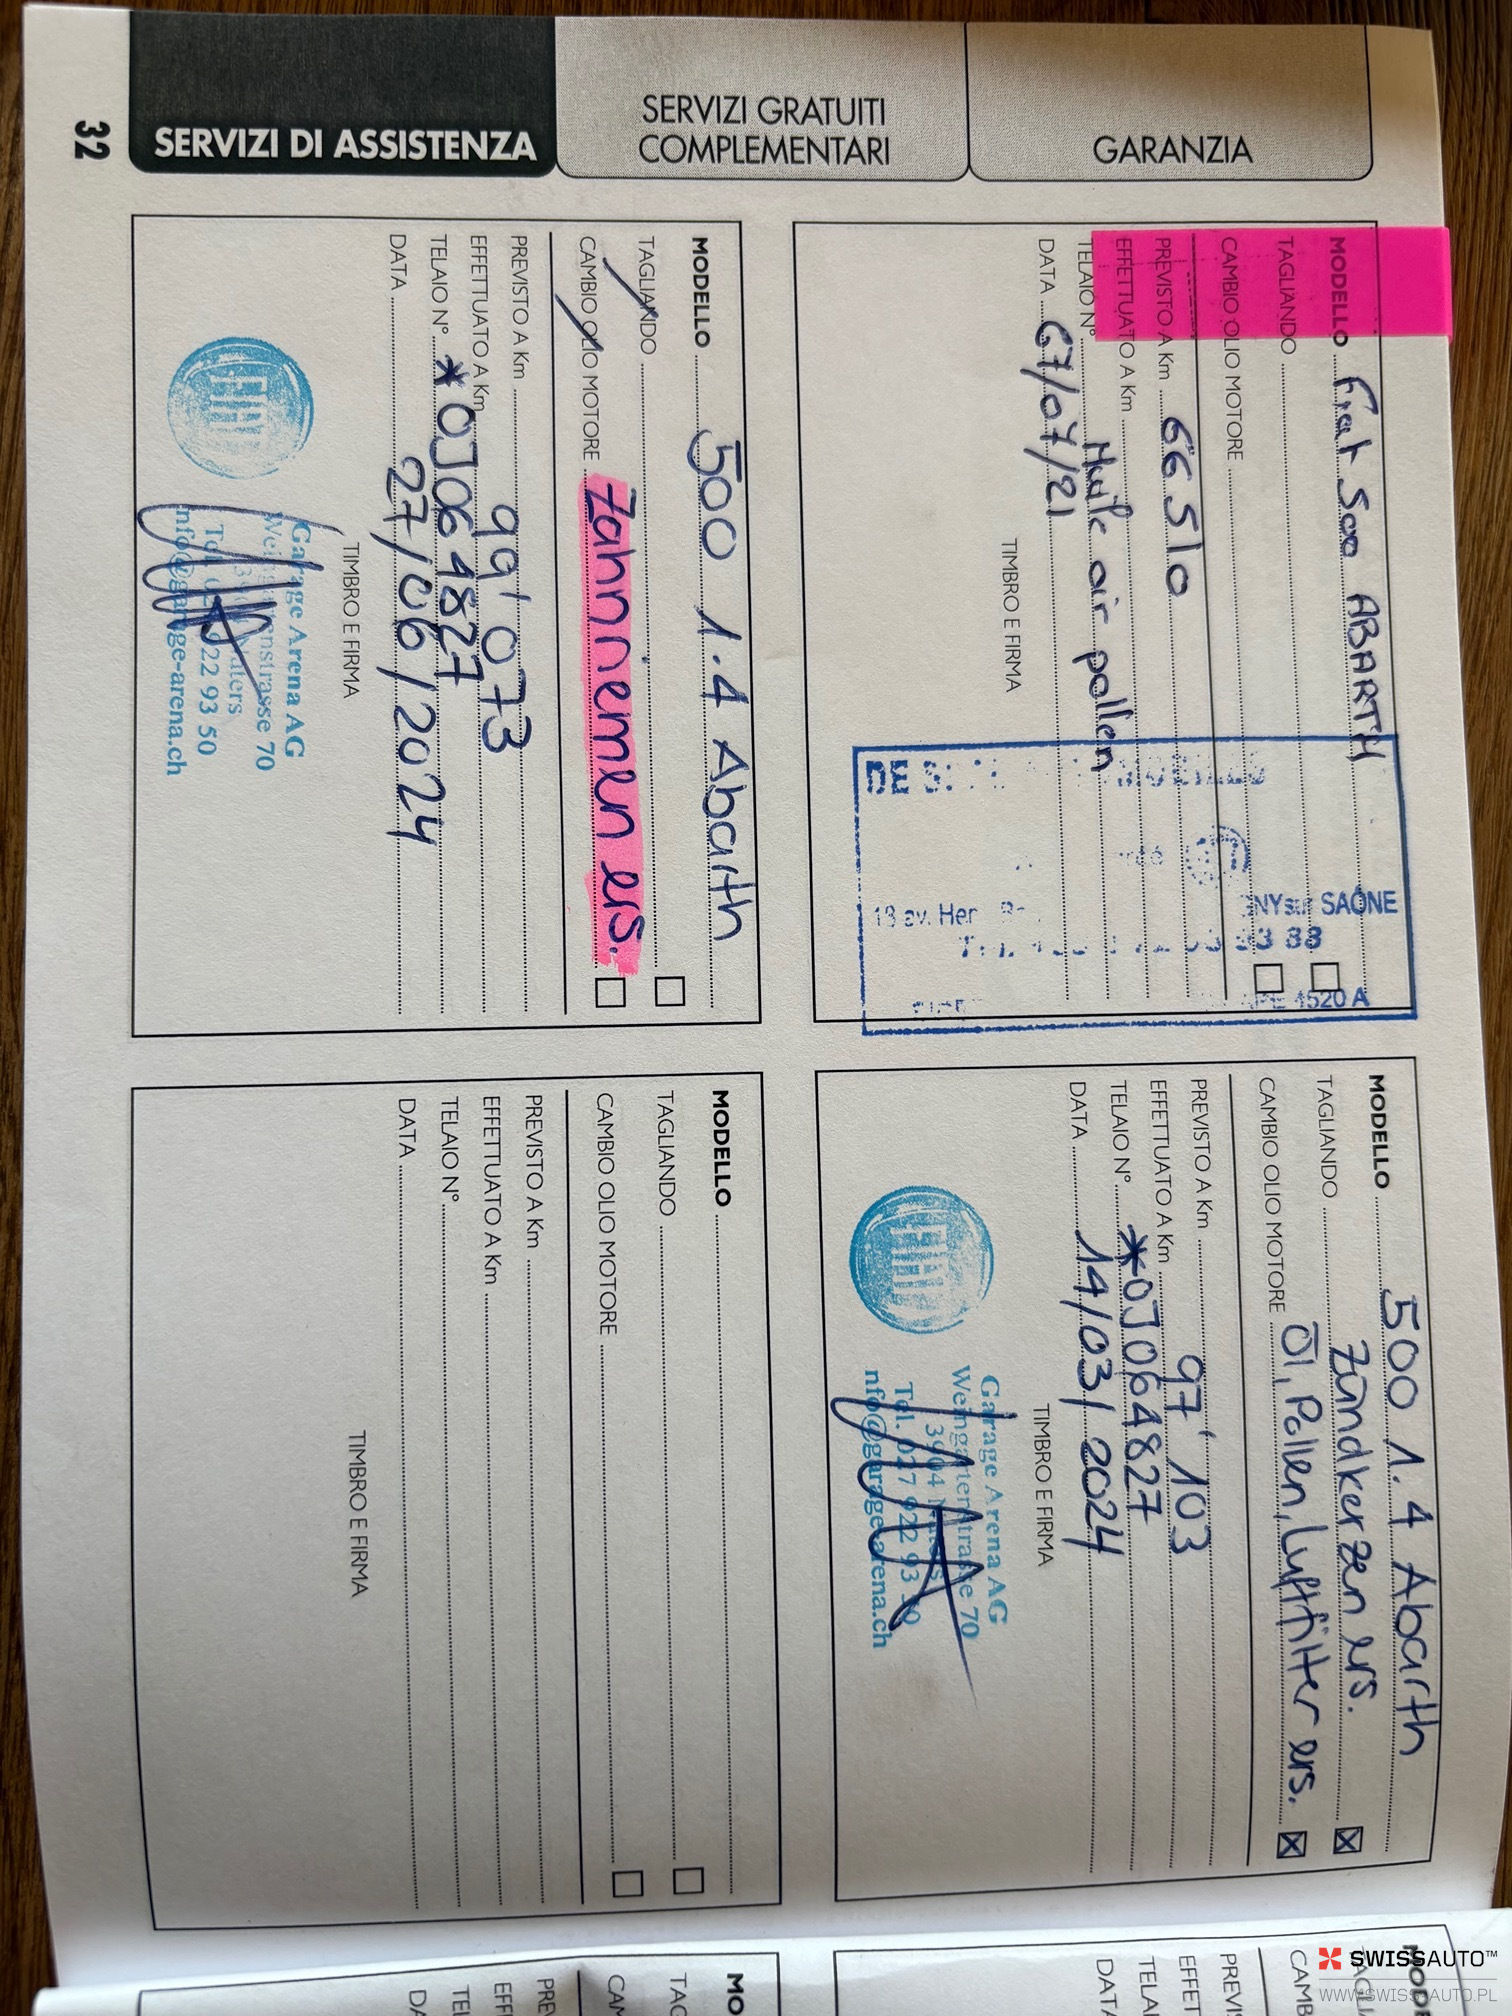 SERVIZI DI ASSISTENZA
SERVIZI GRATUITI
COMPLEMENTARI
GARANZIA
32
MODELLO Fiat 500 ABARTH
TAGLIANDO
CAMBIO OLIO MOTORE
PREVISTO A Km 66 510
EFFETTUATO A Km
TELAIO N° Huile air pollen
DATA 07/07/21
TIMBRO E FIRMA
13 av. Her
NY sur SAÔNE
APE 4520 A
MODELLO 500 1.4 Abarth
TAGLIANDO Zündkerzen ers.
CAMBIO OLIO MOTORE Öl, Pollen, Luftfilter ers.
PREVISTO A Km
EFFETTUATO A Km 97'103
TELAIO N° *0J064827
DATA 14/03/2024
TIMBRO E FIRMA
FIAT
Garage Arena AG
Weingartenstrasse 70
3904 Naters
Tel. 027 922 93 50
nfo@garage-arena.ch
MODELLO 500 1.4 Abarth
TAGLIANDO
CAMBIO OLIO MOTORE Zahnriemen ers.
PREVISTO A Km
EFFETTUATO A Km 99'073
TELAIO N° *0J064827
DATA 27/06/2024
TIMBRO E FIRMA
FIAT
Garage Arena AG
Weingartenstrasse 70
Naters
Tel. 027 922 93 50
nfo@garage-arena.ch
MODELLO
TAGLIANDO
CAMBIO OLIO MOTORE
PREVISTO A Km
EFFETTUATO A Km
TELAIO N°
DATA
TIMBRO E FIRMA
MODE
TAGLIA
CAMB
PREVI
EFFET
TELAI
DATA
MO
TAG
CAM
PREV
EFF
TEL
DA
SWISSAUTO™
WWW.SWISSAUTO.PL